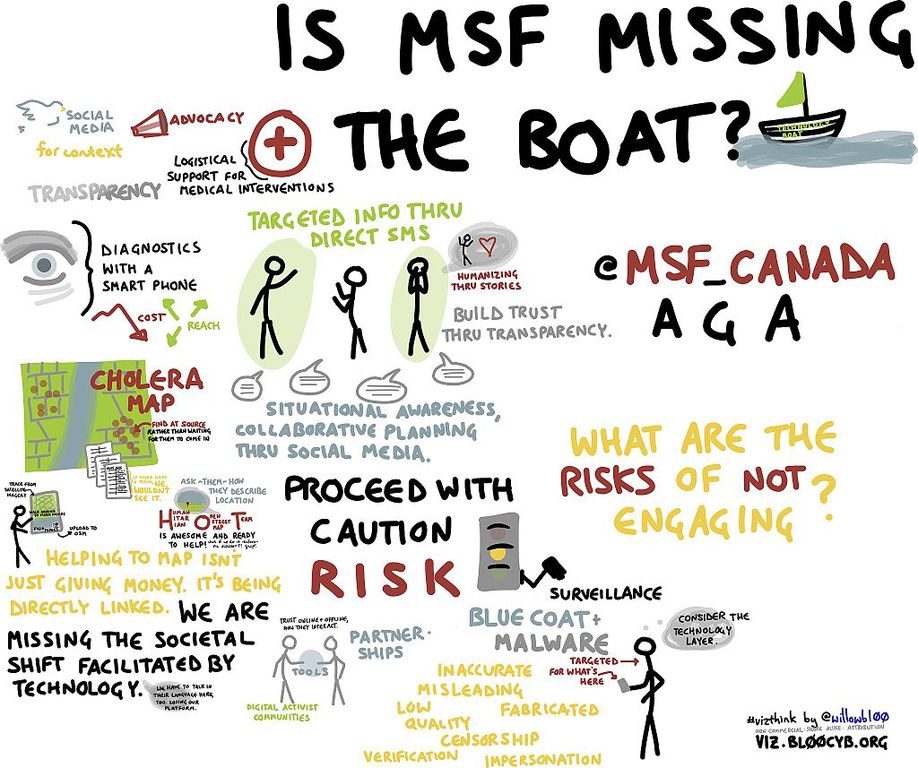 IS MSF MISSING
THE BOAT?
TECHNOLOGY
BOAT
SOCIAL
MEDIA
for context
ADVOCACY
LOGISTICAL
SUPPORT FOR
MEDICAL INTERVENTIONS
TRANSPARENCY
TARGETED INFO THRU
DIRECT SMS
DIAGNOSTICS
WITH A
SMART PHONE
COST
REACH
HUMANIZING
THRU STORIES
BUILD TRUST
THRU TRANSPARENCY.
@MSF_CANADA
AGA
CHOLERA
MAP
FIND AT SOURCE
RATHER THAN WAITING
FOR THEM TO COME IN
SITUATIONAL AWARENESS,
COLLABORATIVE PLANNING
THRU SOCIAL MEDIA.
WHAT ARE THE
RISKS OF NOT
ENGAGING?
TRACE FROM
SATELLITE
IMAGERY
UPLOAD TO
OSM
WE
WOULDN'T
SEE IT.
ASK-THEM-HOW
THEY DESCRIBE
LOCATION
HUMAN
ITAR
IAN
OPEN
STREET
MAP
TEAM
IS AWESOME AND READY
TO HELP!
HELPING TO MAP ISN'T
JUST GIVING MONEY. IT'S BEING
DIRECTLY LINKED. WE ARE
MISSING THE SOCIETAL
SHIFT FACILITATED BY
TECHNOLOGY.
WE HAVE TO TALK IN
THEIR LANGUAGE HERE,
TOO. LOSING OUR
PLATFORM.
PROCEED WITH
CAUTION
RISK
SURVEILLANCE
BLUE COAT +
MALWARE
TRUST ONLINE + OFFLINE,
HOW THEY INTERACT.
TOOLS
PARTNER-
SHIPS
DIGITAL ACTIVIST
COMMUNITIES
CONSIDER THE
TECHNOLOGY
LAYER.
TARGETED
FOR WHAT'S
HERE
INACCURATE
MISLEADING
LOW
QUALITY
FABRICATED
CENSORSHIP
VERIFICATION
IMPERSONATION
#vizthink by @willowbl00
NON COMMERCIAL · SHARE ALIKE · ATTRIBUTION
VIZ.BLØØCYB.ORG